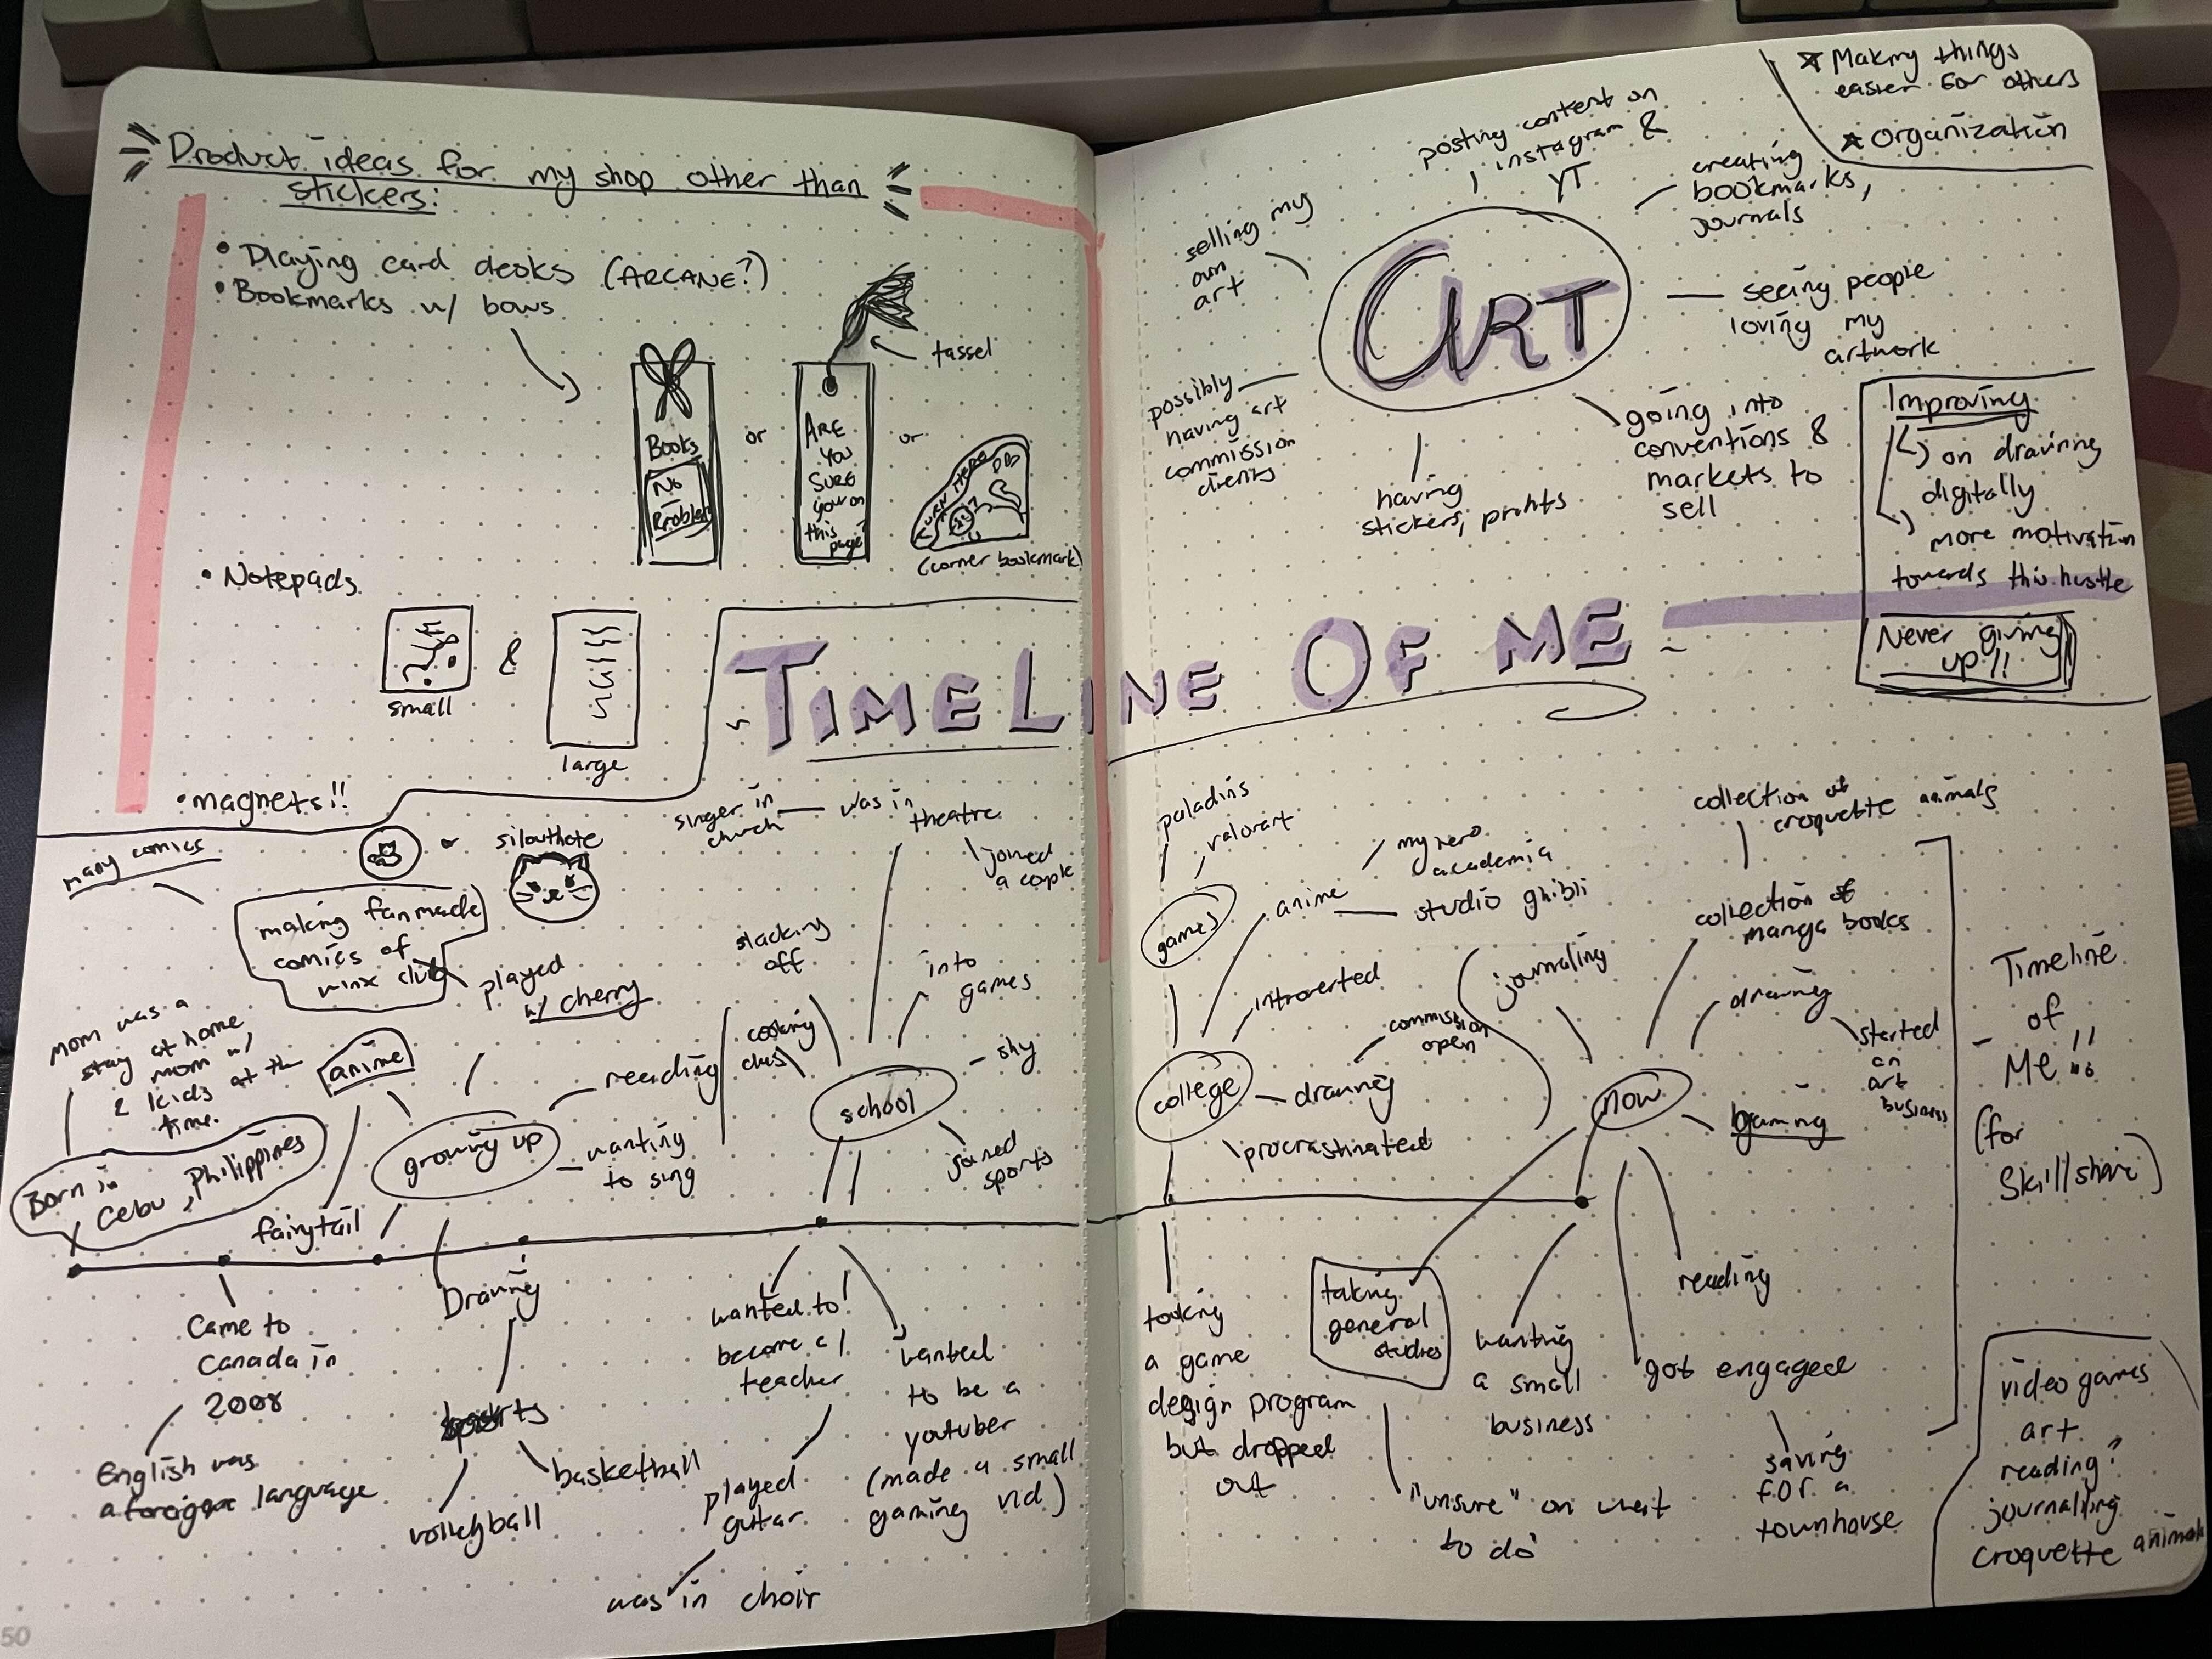 Product ideas for my shop other than
stickers:
• Playing card decks (ARCANE?)
• Bookmarks w/ bows
tassel
Books
No
Problem
or
ARE
YOU
SURE
your on
this
page?
or
(corner bookmark)
• Notepads
small
&
large
• magnets!!
or
silouthete
posting content on
instagram &
YT
creating
bookmarks,
journals
selling my
own
art
ART
seeing people
loving my
artwork
possibly
having art
commission
clients
having
stickers, prints
going into
conventions &
markets to
sell
☆ Making things
easier for others
☆ Organization
Improving
on drawing
digitally
more motivation
towards this hustle
Never giving
up!!
~ TIMELINE OF ME ~
many comics
making fanmade
comics of
winx club
played
w/ cherry
mom was a
stay at home
mom w/
2 kids at the
time.
Born in
Cebu, Philippines
anime
fairytail
growing up
reading
wanting
to sing
Came to
Canada in
2008
English was
a foreign language
Drawing
sports
volleyball
basketball
singer in
church
was in
theatre
joined
a couple
slacking
off
cooking
class
into
games
shy
school
joined
sports
wanted to
become a
teacher
played
guitar
was in choir
wanted
to be a
youtuber
(made a small
gaming vid)
paladins
valorant
games
anime
my hero
academia
studio ghibli
introverted
commission
open
college
drawing
procrastinated
tooking
a game
design program
but dropped
out
collection of
croquette animals
collection of
manga books
journaling
drawing
started
an
art
business
now
gaming
taking
general
studies
"unsure" on what
to do
wanting
a small
business
reading
got engaged
saving
for a
townhouse
Timeline
of
Me!!
(for
Skillshare)
video games
art
reading?
journaling
croquette animals
50